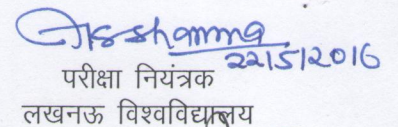 22/5/2016
परीक्षा नियंत्रक
लखनऊ विश्वविद्यालय